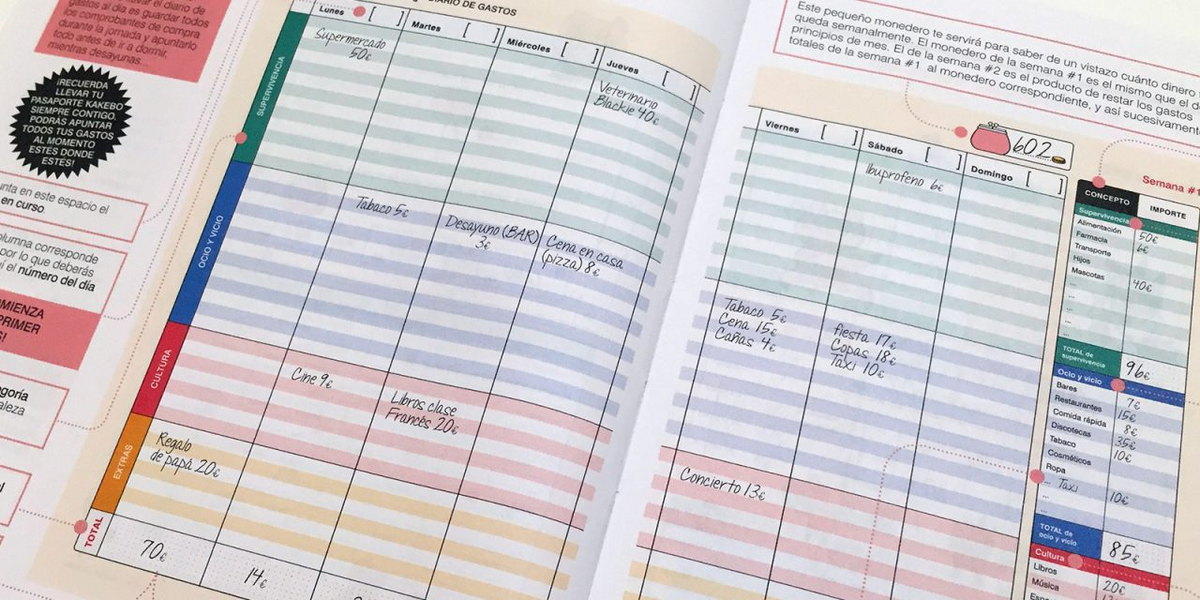 gastos al día es guardar todos
los comprobantes de compra
durante la jornada y apuntarlo
todo antes de ir a dormir,
mientras desayunas...
¡RECUERDA
LLEVAR TU
PASAPORTE KAKEBO
SIEMPRE CONTIGO.
PODRÁS APUNTAR
TODOS TUS GASTOS
AL MOMENTO
ESTÉS DONDE
ESTÉS!
en este espacio el
en curso.
columna corresponde
por lo que deberás
el número del día
DIARIO DE GASTOS
Lunes [ ]
Martes [ ]
Miércoles [ ]
Jueves [ ]
SUPERVIVENCIA
Supermercado
50€
Veterinario
Blackie 40€
OCIO Y VICIO
Tabaco 5€
Desayuno (BAR)
3€
Cena en casa
(pizza) 8€
CULTURA
Cine 9€
Libros clase
Francés 20€
EXTRAS
Regalo
de papá 20€
TOTAL
70€
14€
Este pequeño monedero te servirá para saber de un vistazo cuánto dinero
queda semanalmente. El monedero de la semana #1 es el mismo que el
principios de mes. El de la semana #2 es el producto de restar los gastos
totales de la semana #1 al monedero correspondiente, y así sucesivamente
602
Viernes [ ]
Sábado [ ]
Domingo [ ]
Ibuprofeno 6€
Tabaco 5€
Cena 15€
Cañas 4€
fiesta 17€
Copas 18€
Taxi 10€
Concierto 13€
Semana #1
CONCEPTO IMPORTE
Supervivencia
Alimentación 50€
Farmacia 6€
Transporte
Hijos
Mascotas 40€
...
...
...
...
TOTAL de
supervivencia 96€
Ocio y vicio
Bares 7€
Restaurantes 15€
Comida rápida 8€
Discotecas 35€
Tabaco 10€
Cosméticos
Ropa
... Taxi 10€
...
...
TOTAL de
ocio y vicio 85€
Cultura
Libros 20€
Música